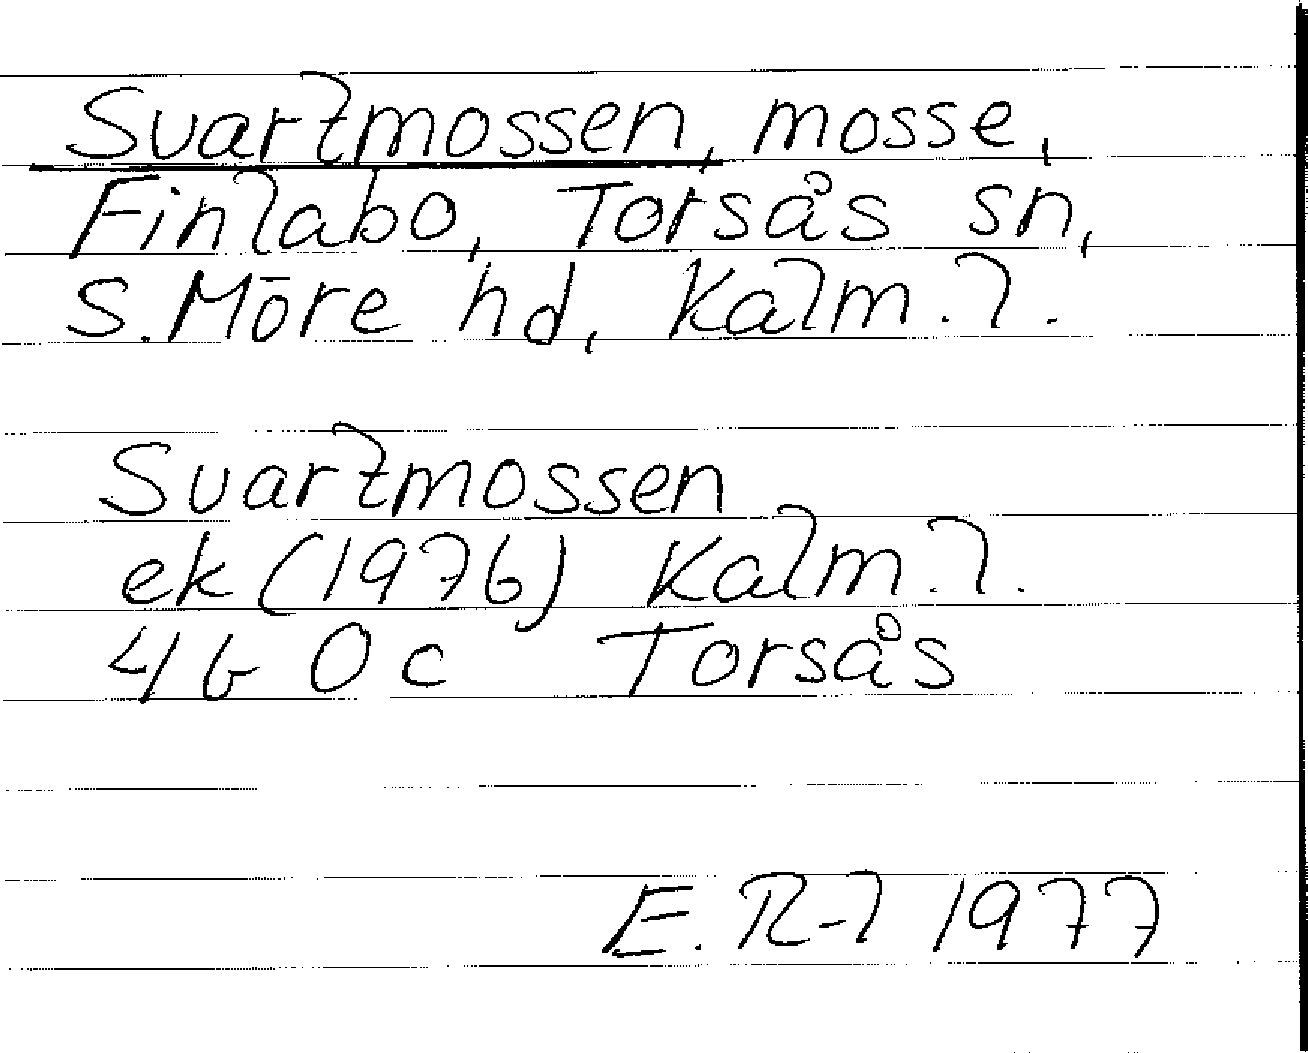 Svartmossen, mosse,
Finlabo, Torsås sn,
S. Möre hd, Kalm. l.
Svartmossen
ek (1976) Kalm. l.
4G 0c Torsås
E. R-l 1977